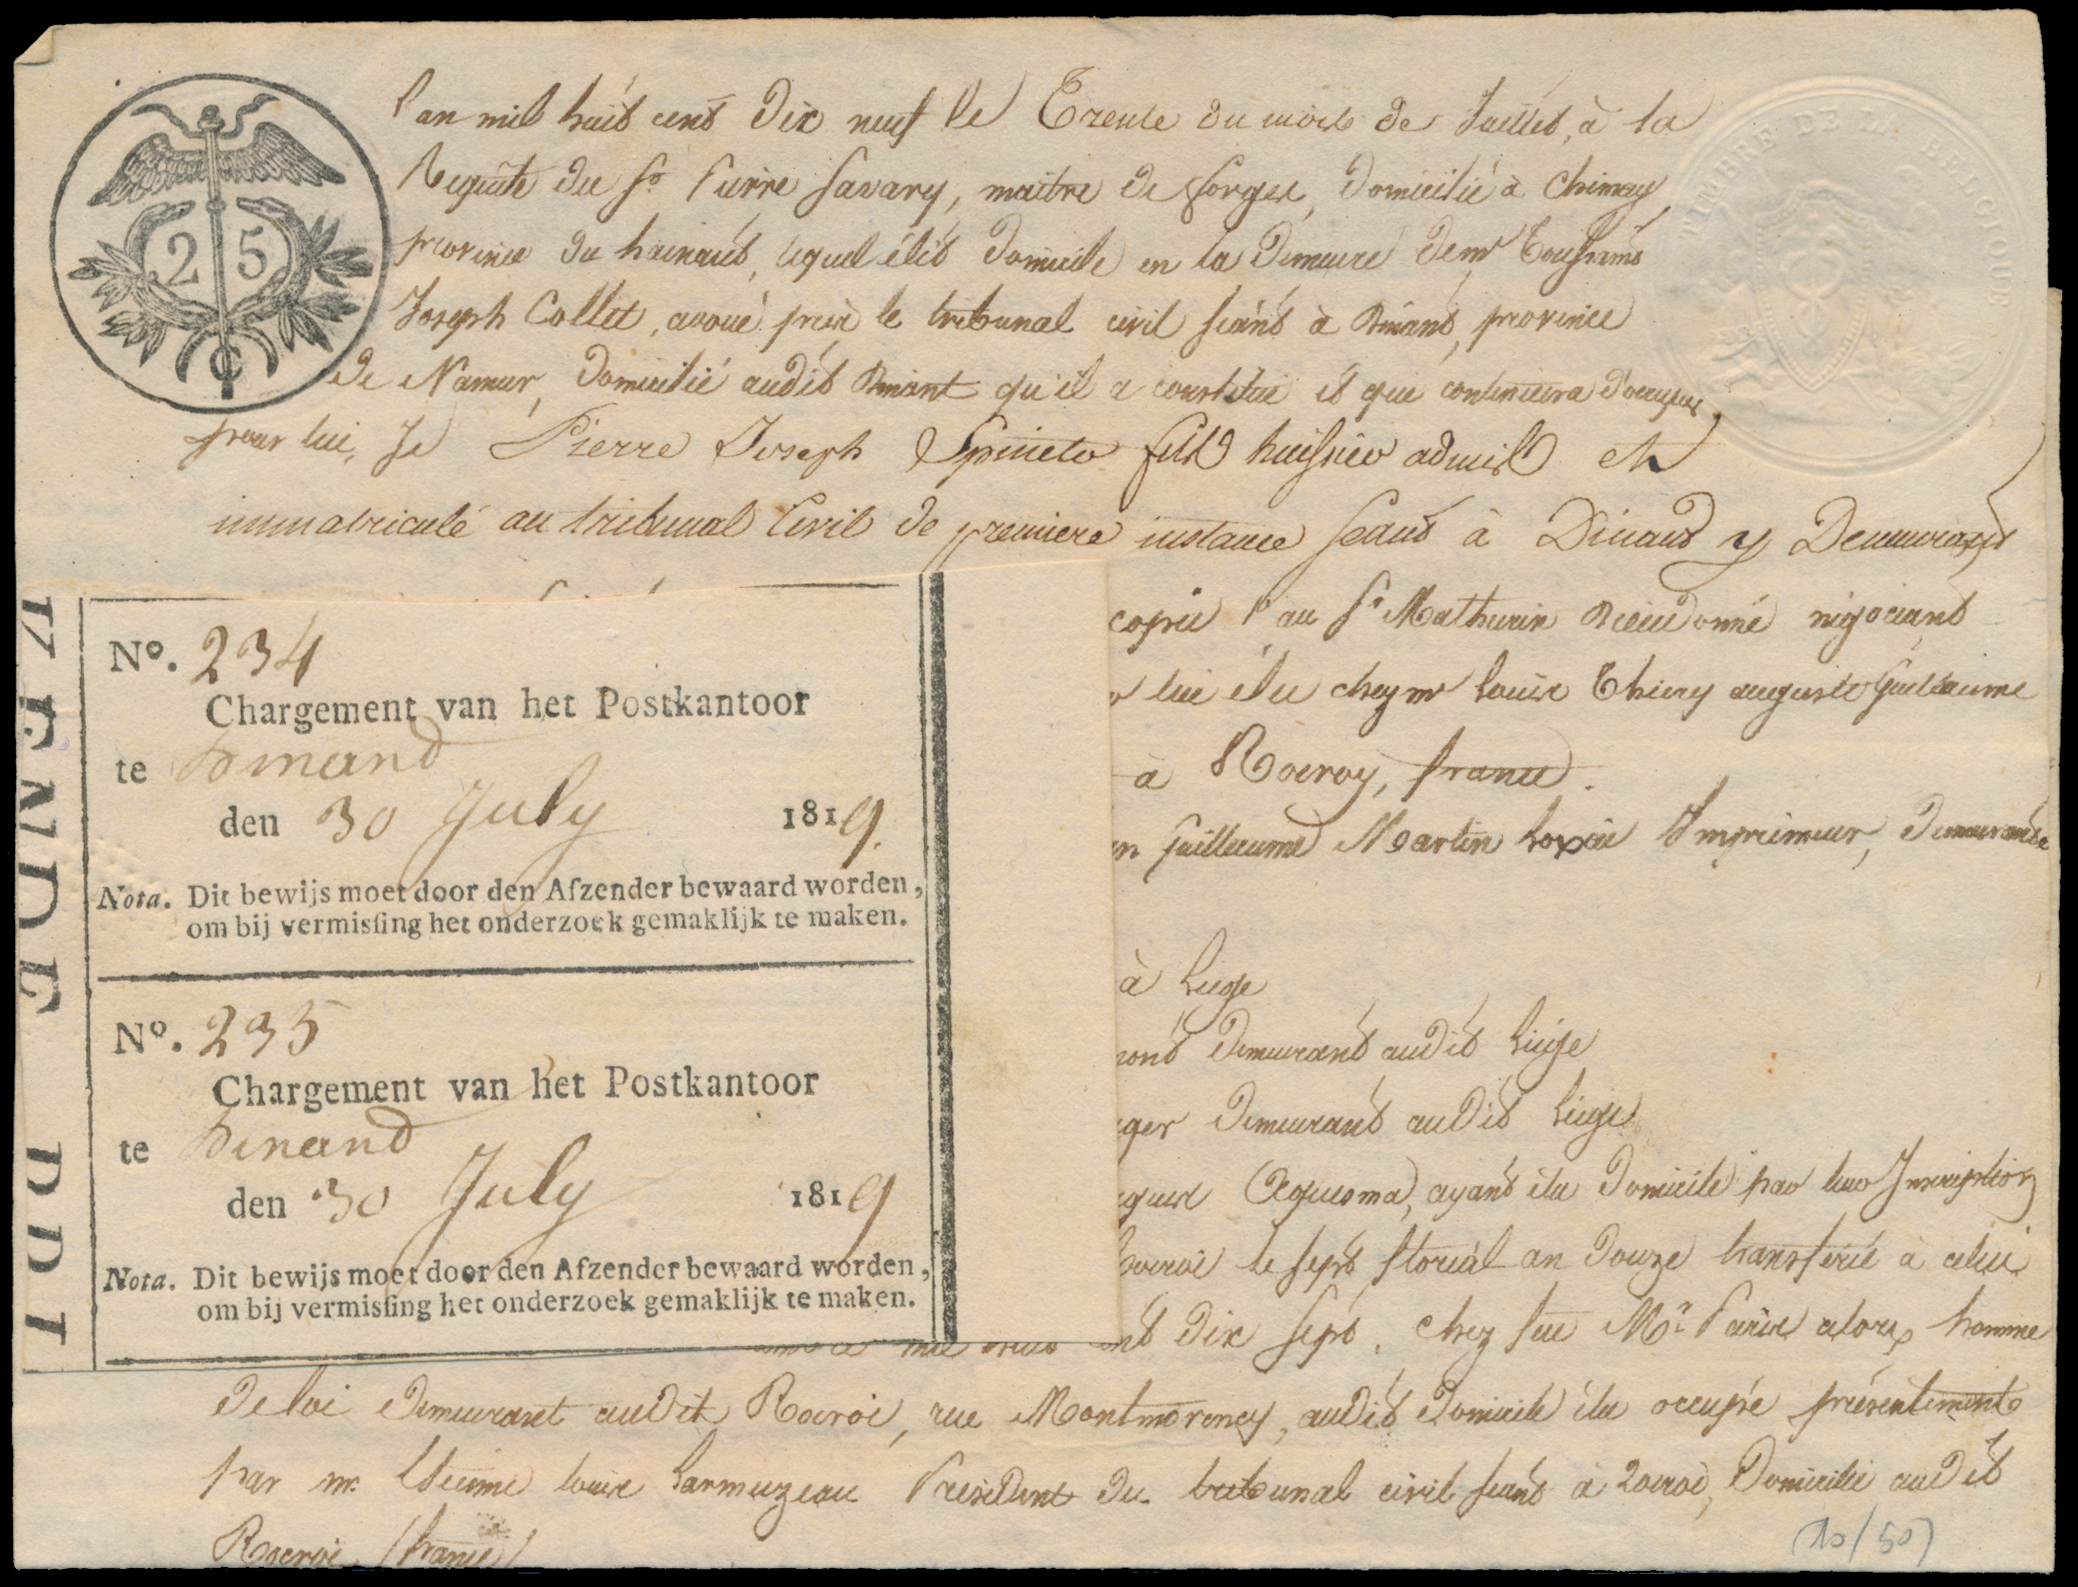 25
TIMBRE DE LA
L'an mil huit cent dix neuf le Trente du mois de Juillet, à la
Requête du Sr. Pierre Savary, maître de forges, domicilié à Chimay
province du hainaut, lequel élit domicile en la demeure de mr Toussaint
Joseph Collet, avoué près le tribunal civil séant à Dinant, province
de Namur, domicilié audit Dinant qu'il a constitué et que continuera d'occuper
pour lui, Je Pierre Joseph fils huissier admis et
immatriculé au tribunal Civil de premiere instance séant à Dinant y Demeurant
copie 1° au Sr Mathurin Dieudonné négociant
lui élu chez mr louis Thiery auguste Guillaume
à Rocroy, france.
Guillaume Martin Imprimeur, demeurant
à Liege
demeurant audit Liége
demeurant audit Liége
ayant élu domicile par leur Inscription
le sept floréal an douze transférée à celui
dix sept, chez feu Mr Paris alors homme
de loi demeurant audit Rocroi, rue Montmorency, audit domicile élu occupé présentement
par mr. louis Larmuzeau Président du tribunal civil séant à Rocroi, domicilié audit
Rocroi (france)
(10/50)
VENDE
No. 234
Chargement van het Postkantoor
te Dinand
den 30 July 1819.
Nota. Dit bewijs moet door den Afzender bewaard worden,
om bij vermisſing het onderzoek gemaklijk te maken.
No. 235
Chargement van het Postkantoor
te Dinand
den 30 July 1819
Nota. Dit bewijs moet door den Afzender bewaard worden,
om bij vermisſing het onderzoek gemaklijk te maken.